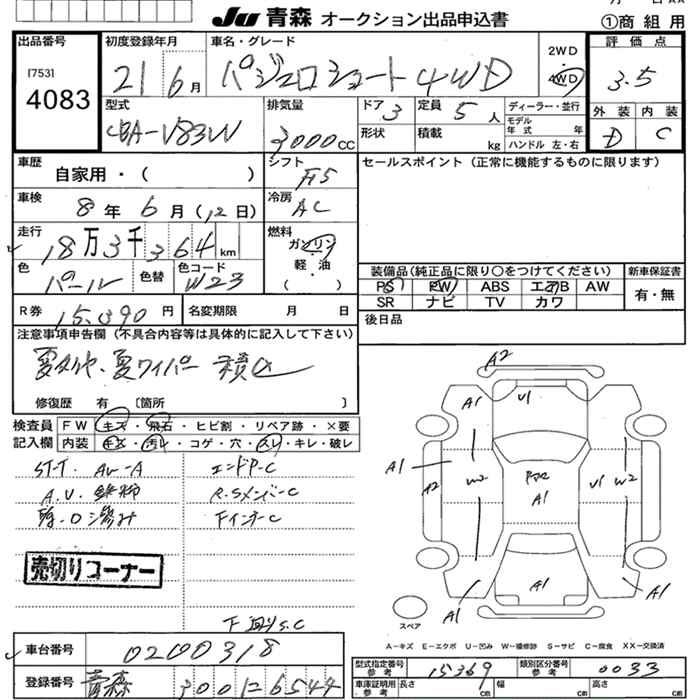 Ju 青森 オークション出品申込書
①商組用
出品番号
[753]
4083
初度登録年月
21 6月
車名・グレード
パジェロショート4WD
2WD
4WD
評価点
3.5
外装 内装
D C
型式
CBA-V83W
排気量
3000CC
ドア 3
定員 5人
ディーラー・並行
モデル年式 年
形状
積載 kg
ハンドル 左・右
車歴
自家用・( )
シフト
F5
セールスポイント (正常に機能するものに限ります)
車検
8年 6月(12日)
冷房
AC
走行
18万3千364km
燃料
ガソリン
軽・油
( )
色
パール
色替
色コード
W23
装備品(純正品に限り○をつけてください)
新車保証書
PS PW ABS エアB AW
SR ナビ TV カワ
有・無
R券 15,390円
名変期限 月 日
後日品
注意事項申告欄 (不具合内容等は具体的に記入して下さい)
夏タイヤ、夏ワイパー 積込
修復歴 有 〔箇所 〕
検査員記入欄
FW キズ・飛石・ヒビ割・リペア跡・×要
内装 キズ・汚レ・コゲ・穴・スレ・キレ・破レ
ST-T. AW-A
エンドP-C
R.SメンバーC
売切りコーナー
下回りS.C
A2
U1
A1
A1
A1
A2
W2
A1
U1
W2
A1
A1
A1
スペア
A-キズ E-エクボ U-凹み W-補修跡 S-サビ C-腐食 XX-交換済
車台番号
0200318
登録番号
青森 300 た 6544
型式指定番号 参考
15369
類別区分番号 参考
0033
車庫証明用 参考
長さ cm
幅 cm
高さ cm